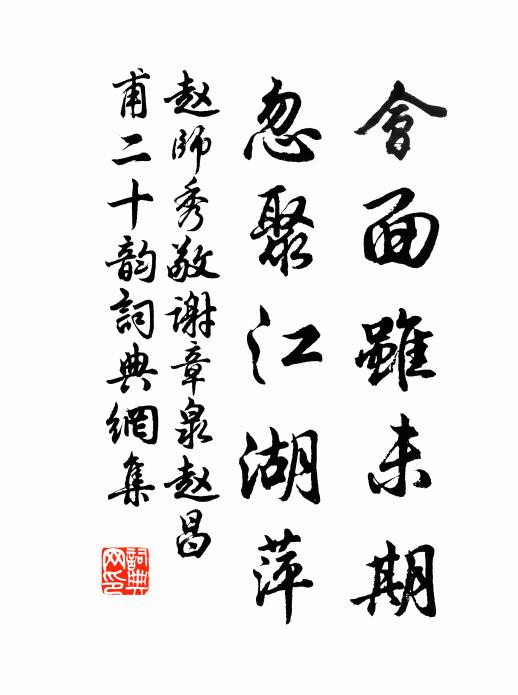 會面雖未期
忽聚江湖萍
赵師秀敬謝章泉赵昌
甫二十韵詞典網集
詞典网印